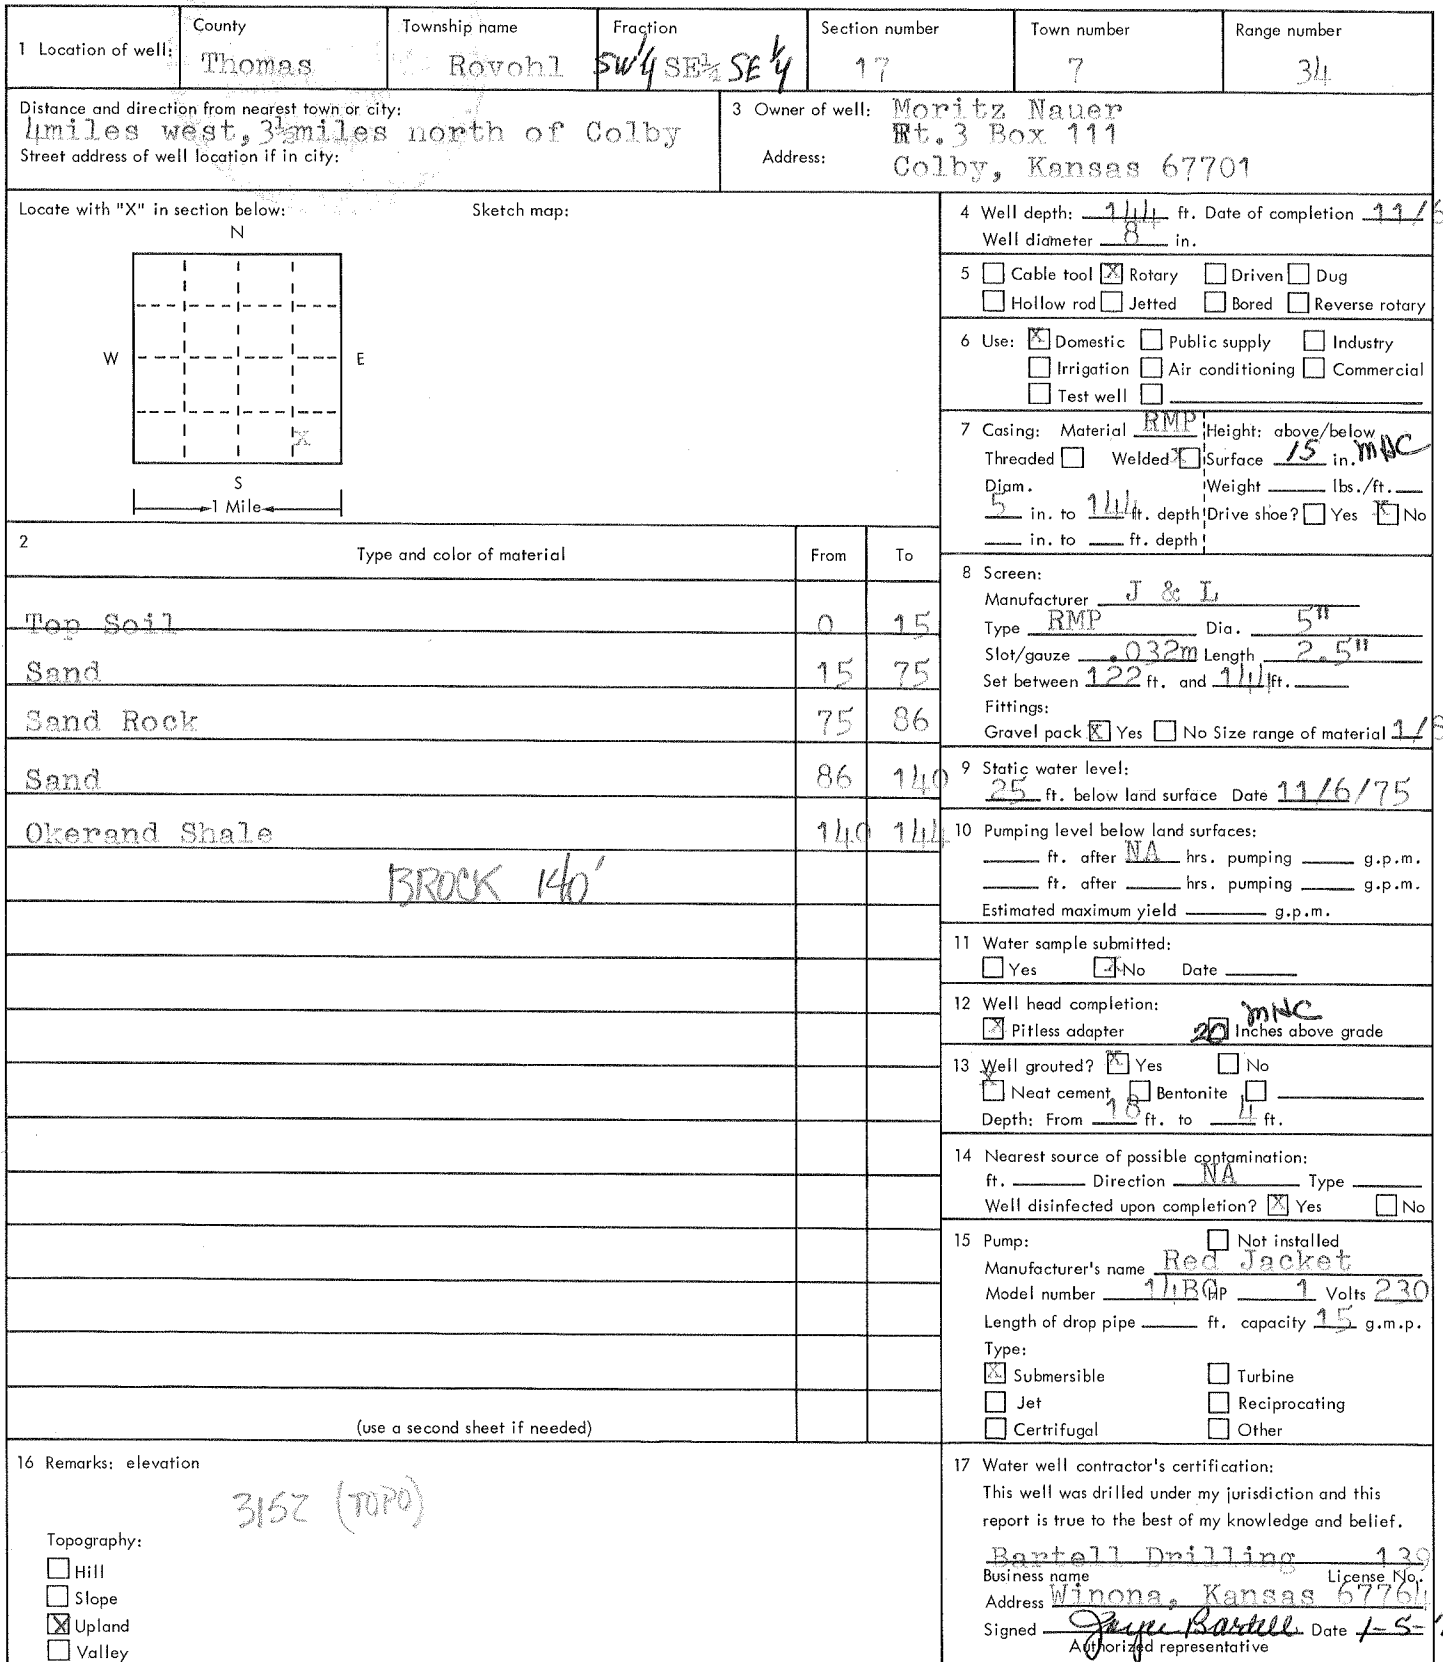 1 Location of well: County Thomas Township name Rovohl Fraction SW 1/4 SE½ SE 1/4 Section number 17 Town number 7 Range number 34
Distance and direction from nearest town or city:
4miles west,3½miles north of Colby
Street address of well location if in city:
3 Owner of well: Moritz Nauer
Rt.3 Box 111
Address: Colby, Kansas 67701
Locate with "X" in section below: Sketch map:
N
W E
X
S
1 Mile
2 Type and color of material From To
Top Soil 0 15
Sand 15 75
Sand Rock 75 86
Sand 86 140
Okerand Shale 140 144
BROCK 140'
(use a second sheet if needed)
4 Well depth: 144 ft. Date of completion 11/6
Well diameter 8 in.
5 Cable tool X Rotary Driven Dug
Hollow rod Jetted Bored Reverse rotary
6 Use: X Domestic Public supply Industry
Irrigation Air conditioning Commercial
Test well
7 Casing: Material RMP Height: above/below
Threaded Welded X Surface 15 in. MHC
Diam. Weight lbs./ft.
5 in. to 144 ft. depth Drive shoe? Yes X No
in. to ft. depth
8 Screen:
Manufacturer J & L
Type RMP Dia. 5"
Slot/gauze .032m Length 2.5"
Set between 122 ft. and 144 ft.
Fittings:
Gravel pack X Yes No Size range of material 1/8
9 Static water level:
25 ft. below land surface Date 11/6/75
10 Pumping level below land surfaces:
ft. after NA hrs. pumping g.p.m.
ft. after hrs. pumping g.p.m.
Estimated maximum yield g.p.m.
11 Water sample submitted:
Yes X No Date
12 Well head completion: MHC
X Pitless adapter 20 Inches above grade
13 Well grouted? X Yes No
X Neat cement Bentonite
Depth: From 18 ft. to 4 ft.
14 Nearest source of possible contamination:
ft. Direction NA Type
Well disinfected upon completion? X Yes No
15 Pump: Not installed
Manufacturer's name Red Jacket
Model number HP 1 Volts 230
Length of drop pipe ft. capacity 15 g.m.p.
Type:
X Submersible Turbine
Jet Reciprocating
Certrifugal Other
16 Remarks: elevation
3152 (TOPO)
Topography:
Hill
Slope
X Upland
Valley
17 Water well contractor's certification:
This well was drilled under my jurisdiction and this
report is true to the best of my knowledge and belief.
Bartell Drilling 139
Business name License No.
Address Winona, Kansas 67764
Signed Bartell Date 1-5-
Authorized representative